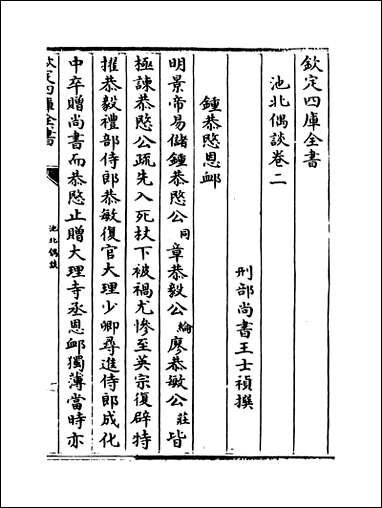 欽定四庫全書
池北偶談卷二
刑部尚書王士禎撰
鍾恭愍恩卹
明景帝易儲鍾恭愍公同章恭毅公綸廖恭敏公莊皆
極諫恭愍公疏先入死杖下被禍尤慘至英宗復辟特
擢恭毅禮部侍郎恭敏復官大理少卿尋進侍郎成化
中卒贈尚書而恭愍止贈大理寺丞恩卹獨薄當時亦
欽定四庫全書
池北偶談
一